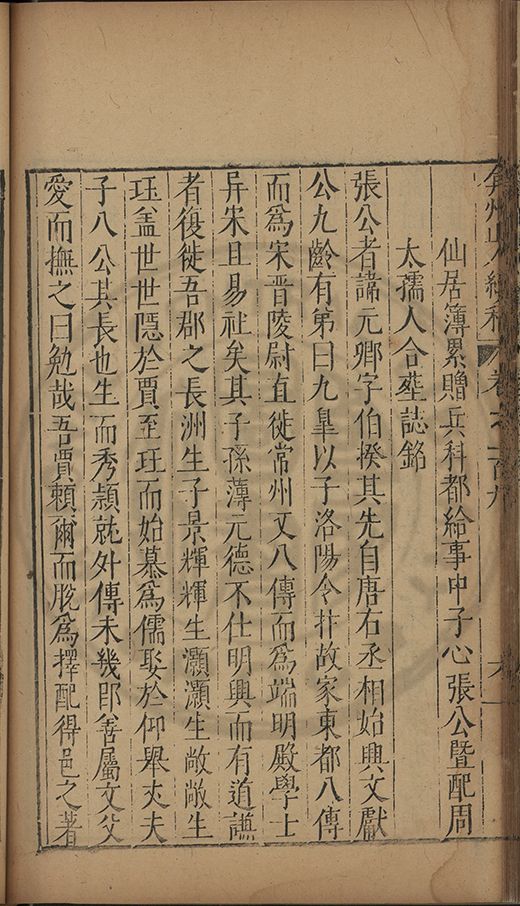 弇州山人續稿 卷之一百九
仙居簿累贈兵科都給事中子心張公暨配周
太孺人合塟誌銘
張公者諱元卿字伯揆其先自唐右丞相始興文獻
公九齡有第曰九臯以子洛陽令抃故家東都八傳
而爲宋晉陵尉直徙常州又八傳而爲端明殿學士
异宋且易社矣其子孫薄元德不仕明興而有道謙
者復徙吾郡之長洲生子景輝輝生灝灝生敞敞生
珏盖世世隱於賈至珏而始慕爲儒娶於仰舉丈夫
子八公其長也生而秀頴就外傅未幾即善屬文父
愛而撫之曰勉哉吾賈頼爾而脫爲擇配得邑之著